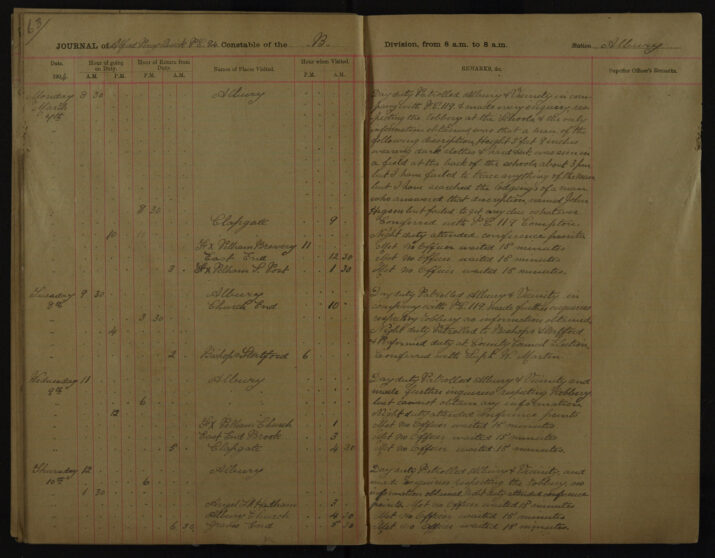 63
JOURNAL of Alfred Constable of the B. Division, from 8 a.m. to 8 a.m. Station Albury
Date. Hour of going on Duty. Hour of Return from Duty. Names of Places Visited. Hour when Visited. REMARKS, &c. Superior Officer's Remarks.
190 A.M. P.M. A.M. P.M. P.M. A.M.
Monday 8 30 Albury Day duty Patrolled Albury & Vicinity in com-
March pany with P.C. 119 & made every enquiry, res-
7th pecting the robbery at the Schools & the only
information obtained was that a man of the
following description, Height 5 feet 8 inches
wearing dark clothes & hard hat was seen in
a field at the back of the schools about 3 pm
but I have failed to trace anything of the man
but I have searched the lodgings of a man
who answered that description, named John
but failed to get any clue whatever
8 30 Clapgate 9 Conferred with P.C. 118 Compton.
10 Night duty attended conference points
Fx Pelham Brewery 11 Met no Officer waited 15 minutes
East End 12 30 Met no Officer waited 15 minutes
3 Fx Pelham S. Post 1 30 Met no Officer waited 15 minutes.
Tuesday 9 30 Albury Day duty Patrolled Albury & Vicinity in
8th Church End 10 company with P.C. 119, made further enquiries
3 30 respecting robbery no information obtained
4 Night duty Patrolled to Bishops Stortford
& Performed duty at County Council Election
2 Bishops Stortford 6 Conferred with Supt. W. Martin.
Wednesday 11 Albury Day duty Patrolled Albury & Vicinity and
9th made further enquiries respecting Robbery
6 but cannot obtain any information
12 Night duty attended conference points
Fx Pelham Church 1 Met no Officer waited 15 minutes
East End Brook 3 Met no Officer waited 15 minutes
5 Clapgate 4 30 Met no Officer waited 15 minutes.
Thursday 12 Albury Day duty Patrolled Albury & Vicinity, and
10th 6 made enquiries respecting the robbery, no
1 30 information obtained Night duty attended conference
3 points. Met no Officer waited 15 minutes
Albury Church 4 30 Met no Officer waited 15 minutes
6 30 Graves End 5 30 Met no Officer waited 15 minutes.